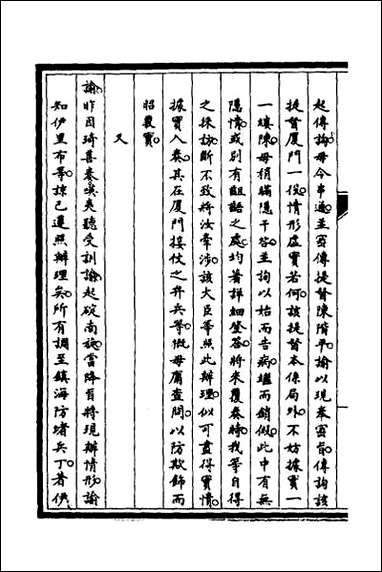 起傳詢毋令串遞並密傳提督陳階平諭以現奉密旨傳詢該
提督厦門一役情形虛實若何該提督本係局外不妨據實一
一縷陳毋稍瞞隱干咎並詢以始而告病繼而銷假此中有無
隱情或別有齟語之處均著詳細登答將來覆奏時我等自得
之採訪斷不致將汝牽涉該大臣等照此辦理似可盡得實情
據實入奏其在厦門接仗之弁兵等概毋庸查問以防欺飾而
昭覈實
又
諭昨因琦善奏嘆夷聽受訓諭起碇南旋當降旨將現辦情形諭
知伊里布等諒已遵照辦理矣所有調至鎮海防堵兵丁著伊